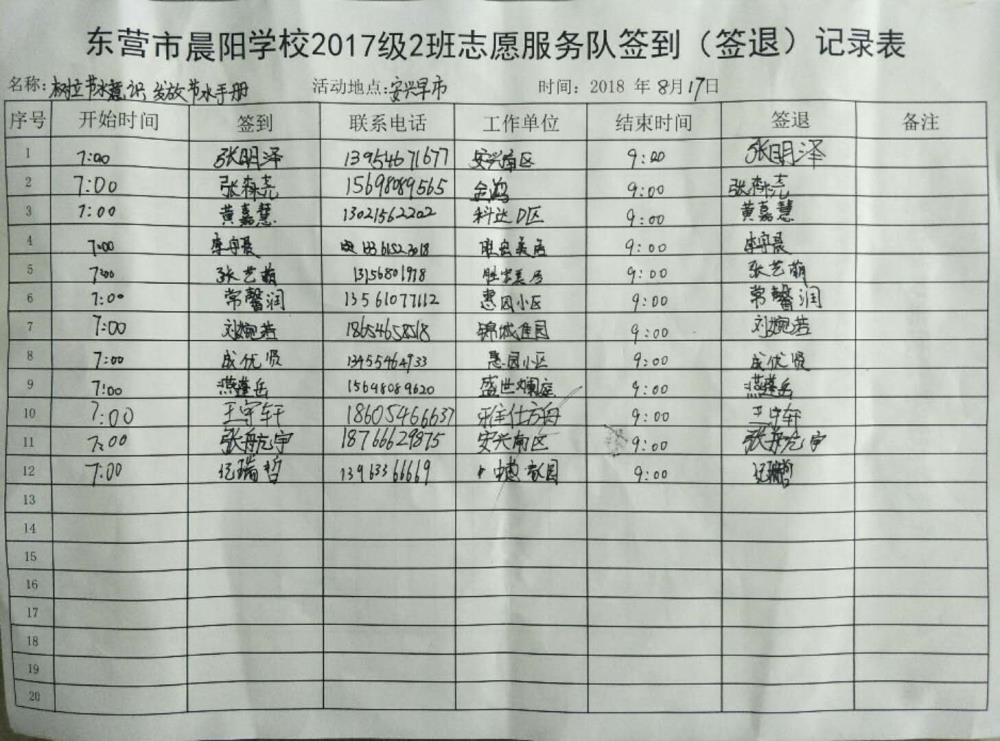 东营市晨阳学校2017级2班志愿服务队签到（签退）记录表
名称：树立节水意识 发放节水手册 活动地点：安兴早市 时间：2018 年 8月17日
序号 开始时间 签到 联系电话 工作单位 结束时间 签退 备注
1 7:00 张明泽 13954671677 安兴南区 9:00 张明泽
2 7:00 张森尧 15698089565 9:00 张森尧
3 7:00 黄嘉慧 13021562202 科达D区 9:00 黄嘉慧
4 7:00 李守晨 9:00 李守晨
5 7:00 张艺萌 13156801978 9:00 张艺萌
6 7:00 常馨润 13561077112 惠园小区 9:00 常馨润
7 7:00 刘婉若 18654658518 锦城佳园 9:00 刘婉若
8 7:00 成优贤 13455464933 惠园小区 9:00 成优贤
9 7:00 15698089620 9:00
10 7:00 王守轩 18605466637 9:00 王守轩
11 7:00 18766629875 安兴南区 9:00
12 7:00 瑞哲 13963366669 9:00
13
14
15
16
17
18
19
20